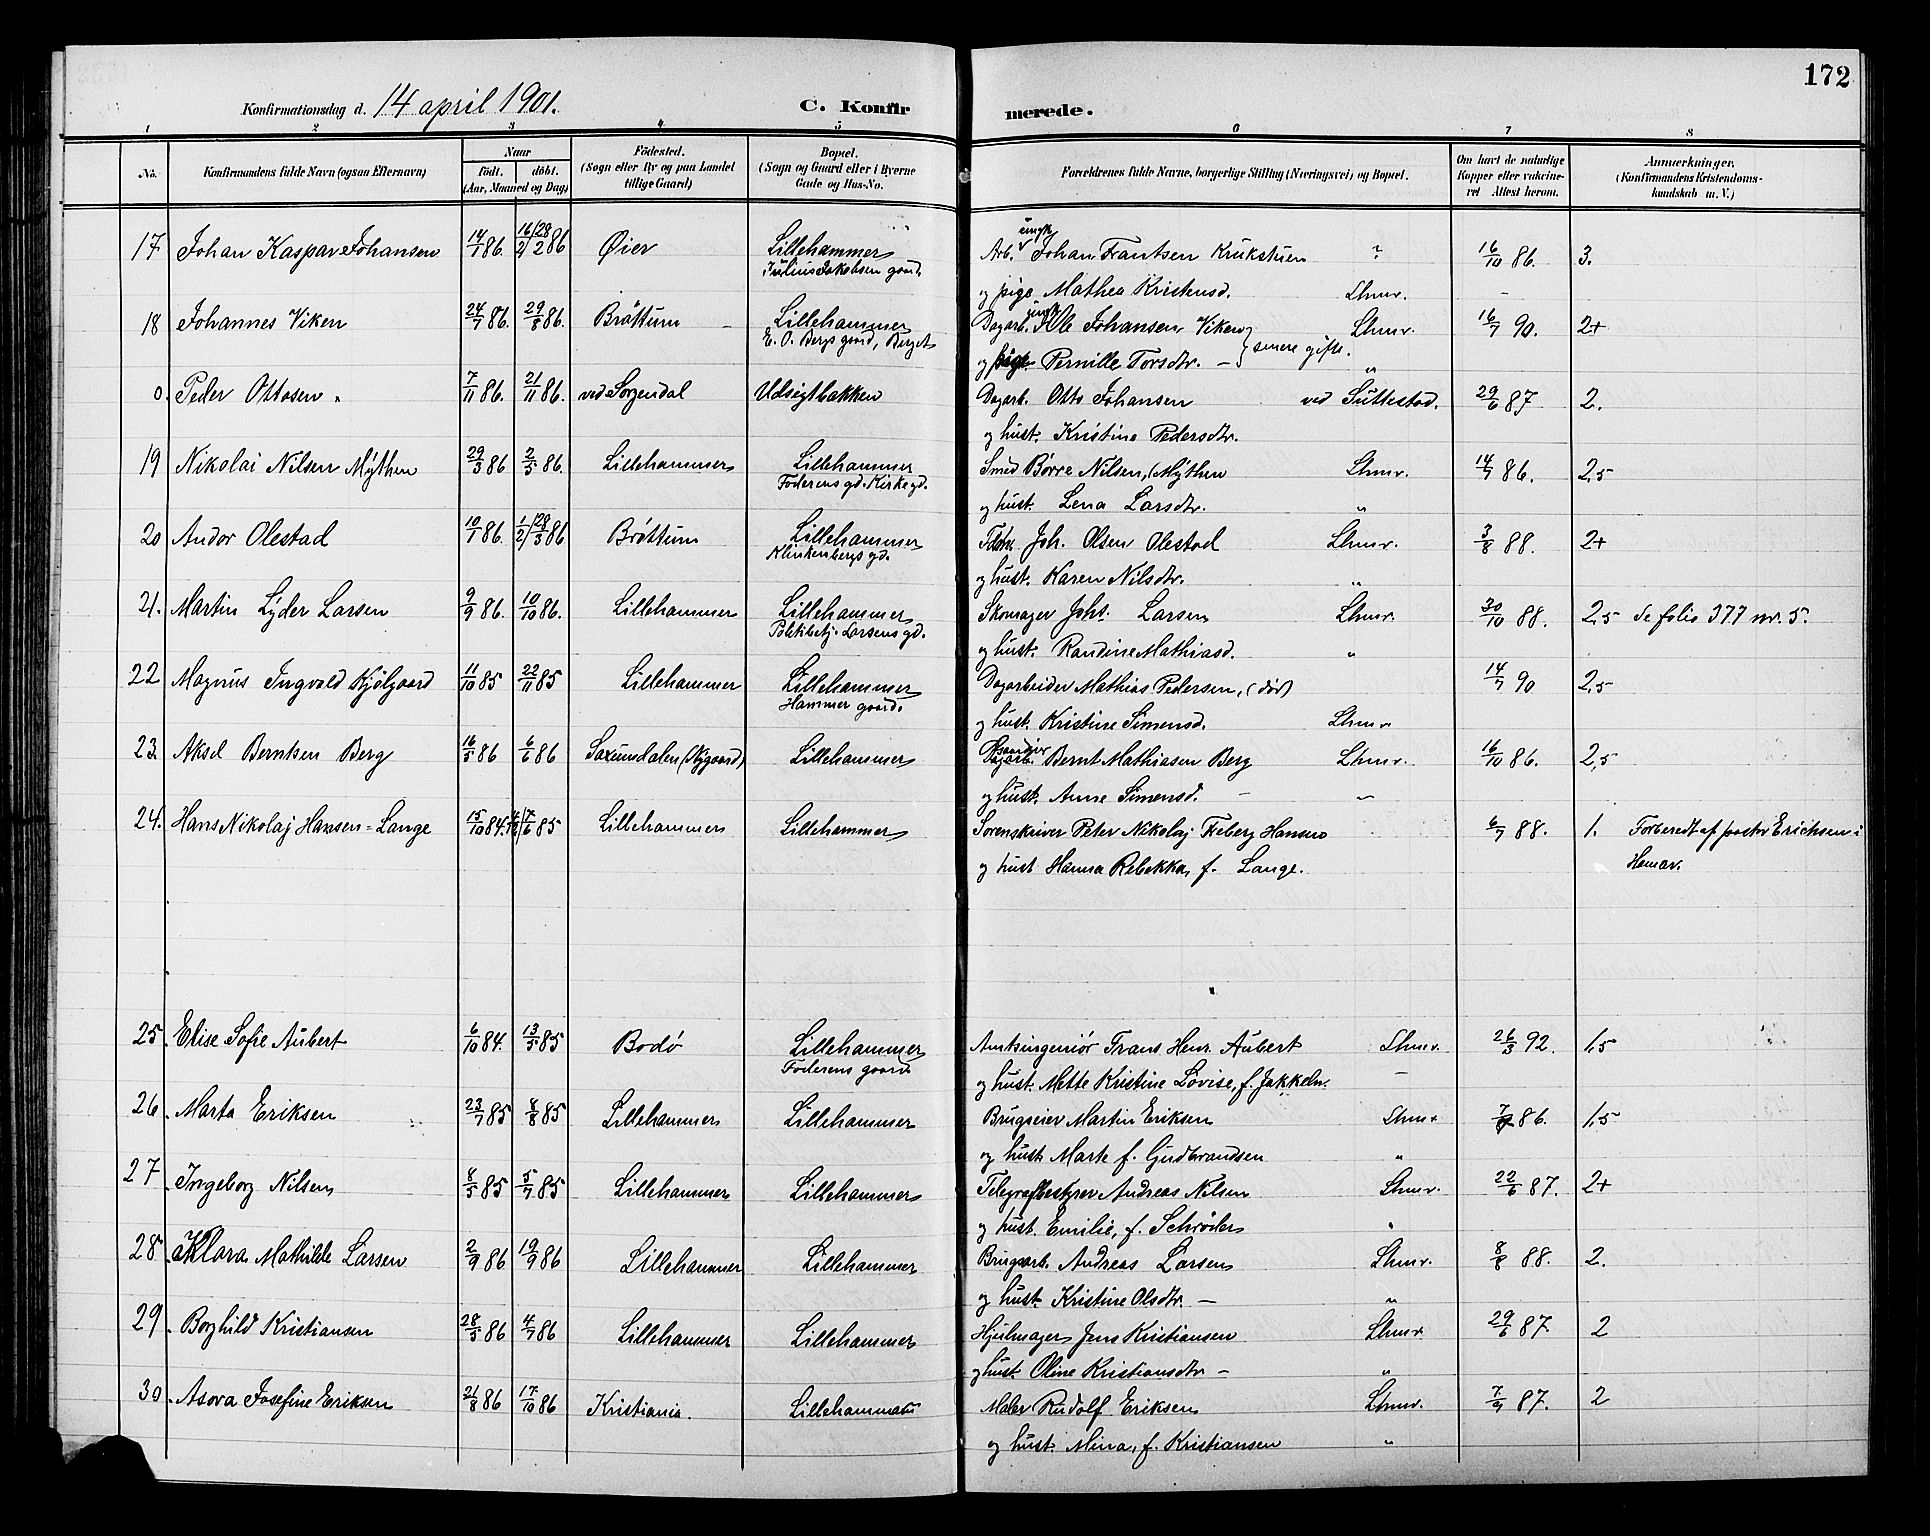 172
Konfirmationsdag d. 14 april 1901. C. Konfirmerede.
1 2 3 4 5 6 7 8
No. Konfirmandens fulde Navn (ogsaa Efternavn) Naar Födt. döbt. (Aar, Maaned og Dag) Födested. (Sogn eller By og paa Landet tillige Gaard) Bopæl. (Sogn og Gaard eller i Byerne Gade og Hus-No. Forældrenes fulde Navne, borgerlige Stilling (Næringsvei) og Bopæl. Om havt de naturlige Kopper eller vaccineret Attest herom. Anmærkninger, (Konfirmandens Kristendomskundskab m. V.)
17 Johan Kaspar Johansen 14/7 86. 16/2 28/2 86 Øier Lillehammer Arb. ungk. Johan Frantsen Krukstuen ? 16/10 86. 3.
Julius Jakobsen gaard.
og pige Mathea Kristensd. Lhmr.
18 Johannes Viken 24/7 86. 29/8 86. Brøttum Lillehammer Dagarb. ungk. Ole Johansen Viken Lhmr. 16/7 90. 2+
E. O. Bergs gaard, Berget
og pige Pernille Torsdtr. } senere gifte. "
0. Peder Ottosen 7/11 86. 21/11 86. ved Sorgendal Udsigtbakken Dagarb. Otto Johansen ved Suttestad. 29/6 87 2.
og hust. Kristine Pedersdtr.
19 Nikolai Nilsen Mÿthen 29/3 86 2/5 86. Lillehammer Lillehammer Smed Børre Nilsen, (Mÿthen Lhmr. 14/7 86. 2,5
Foderens gd. Kirkegd.
og hust. Lena Larsdtr. "
20 Andor Olestad 10/7 86. 1/2 28/3 86 Brøttum Lillehammer Joh. Olsen Olestad Lhmr. 3/8 88. 2+
Klinkenbergs gd.
og hust. Karen Nilsdtr. "
21. Martin Lÿder Larsen 9/9 86. 10/10 86. Lillehammer Lillehammer Skomager Johs. Larsen Lhmr. 30/10 88. 2,5 Se folio 377 nr. 5.
Politibetj. Larsens gd.
og hust. Randine Mathiasd. "
22 Magnus Ingvald Kjølgaard 11/10 85 22/11 85 Lillehammer Lillehammer Dagarbeider Mathias Pedersen, (død) 14/7 90 2,5
Hammer gaard.
og hust. Kristine Simensd. Lhmr
23. Aksel Berntsen Berg 16/5 86 6/6 86 Saxumdalen (Nygaard) Lillehammer Dagarb. Bernt Mathiasen Berg Lhmr. 16/10 86. 2,5
og hust. Anne Simensd. "
24. Hans Nikolaj Hansen-Lange 15/10 84. 7/6 85 Lillehammer Lillehammer Sorenskriver Peter Nikolaj Friberg Hansen 6/7 88. 1. Forberedt af pastor Erichsen i
og hust Hanna Rebekka, f. Lange. Hamar.
25 Elise Sofie Aubert 6/10 84. 13/5 85 Bodø Lillehammer Amtsingeniør Frans Henr. Aubert Lhmr. 26/3 92. 1,5
Foderens gaard.
og hust. Mette Kristine Lovise, f. Jakkeln.
26. Marta Eriksen 23/7 85 8/8 85 Lillehammer Lillehammer Brugseier Martin Eriksen Lhmr 7/9 86. 1,5
og hust. Marte f. Gudbrandsen "
27 Ingeborg Nilsen 8/5 85 5/7 85 Lillehammer Lillehammer Telegrafbestyrer Andreas Nilsen Lhmr. 22/6 87. 2+
og hust. Emilie, f. Schrøder "
28 Klara Mathilde Larsen 2/9 86 19/9 86 Lillehammer Lillehammer Brugsarb. Andreas Larsen Lhmr. 8/8 88. 2.
og hust. Kristine Olsdtr. "
29 Borghild Kristiansen 28/5 86 4/7 86 Lillehammer Lillehammer Hjulmager Jens Kristiansen Lhmr. 29/6 87. 2
og hust. Oline Kristiansdtr "
30 Asora Josefine Eriksen 21/8 86 17/10 86 Kristiania. Lillehammer Maler Rudolf Eriksen Lhmr. 7/9 87. 2
og hust. Mina, f. Kristiansen "